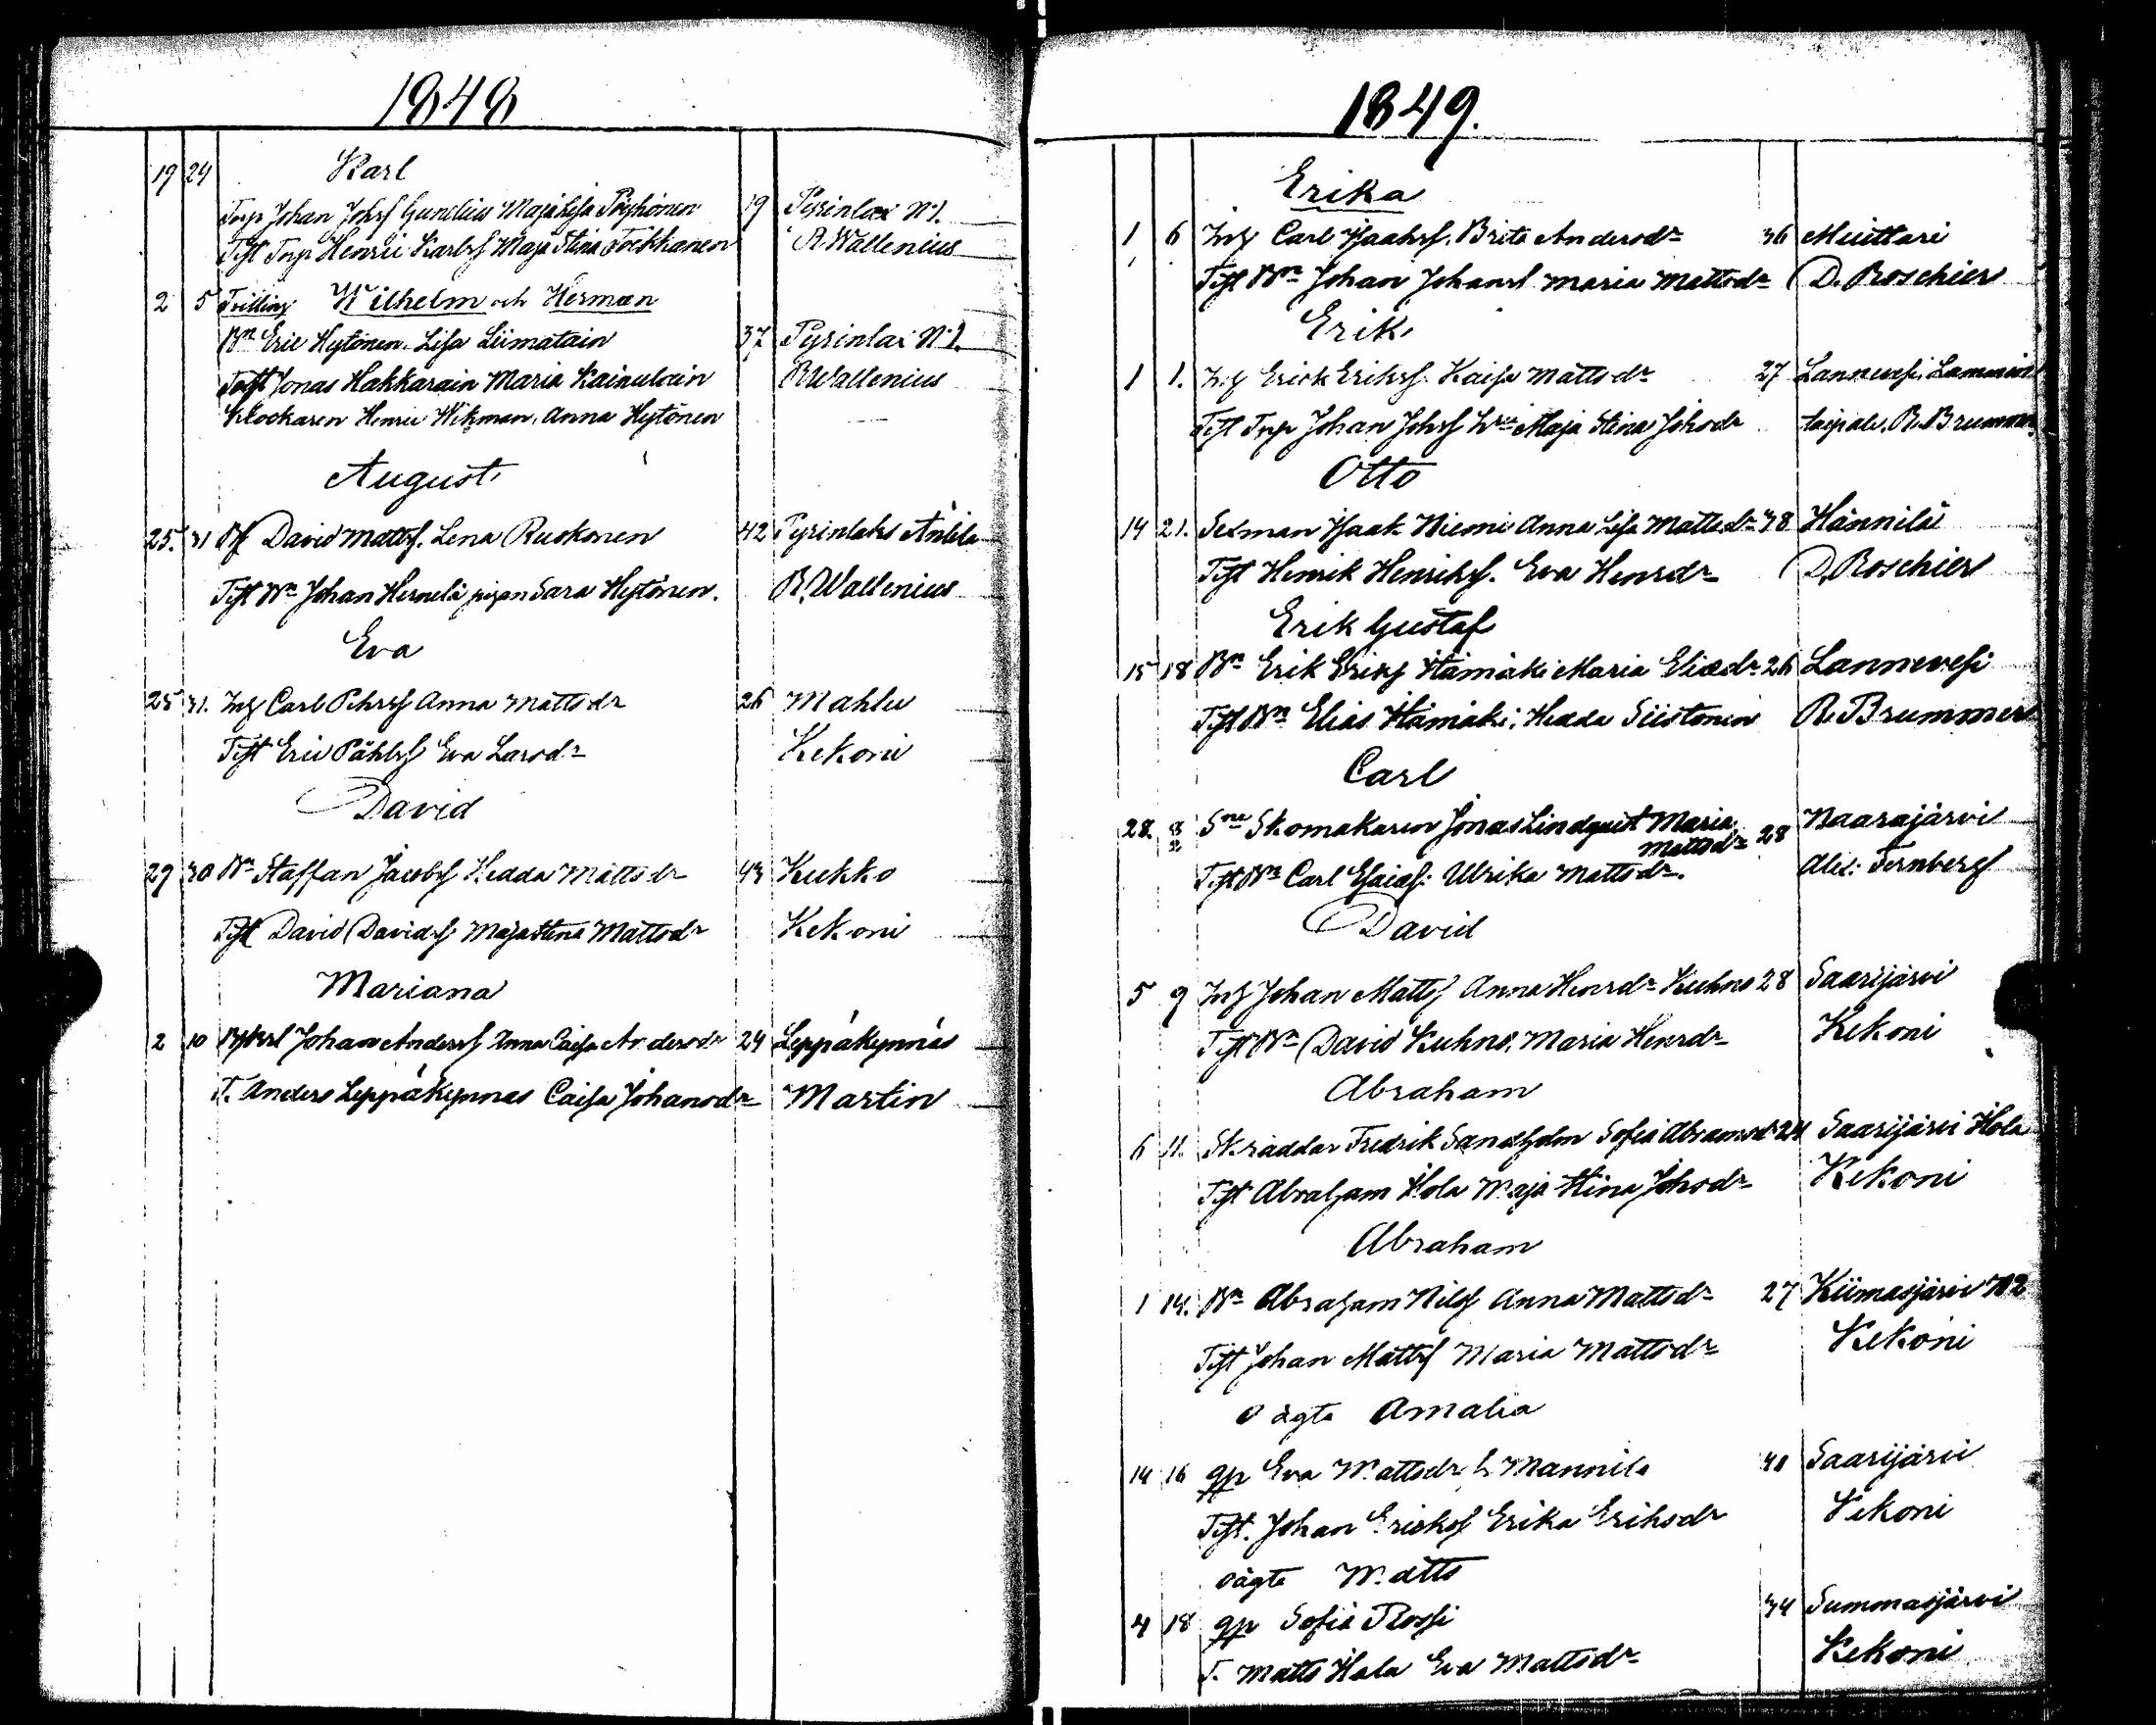 1848
19 24 Karl
Torp Johan Johsf Gundius Maja Lisa Pöyhönen 19 Pyrinlax N1.
Test Torp Henric Karlsf Maja Stina Tockkanen R Wallenius
2 5 Tvilling Wilhelm och Herman
Bn Eric Heytönen. Lisa Liimatain 37 Pyrinlax N1.
Test Jonas Hakkarain Maria Kainulain R Wallenius
Klockaren Henric Wikman, Anna Heytönen
August
25. 31 David Mattsf. Lena Ruokonen 42 Pyrinlaks Anlila
Test Bn Johan Hernelä pigan Sara Heytönen. R. Wallenius
Eva
25 31. Ing Carl Pehrsf Anna Mattsdr 26 Mahlu
Test Eric Påhlsf Eva Larsdr Kekoni
David
29 30 Bn Staffan Jacobsf Hedda Mattsdr 43 Kukko
Test David Davidsf Maja Stina Mattsdr Kekoni
Mariana
2 10 Johan Andersf Anna Caisa Andersdr 24 Leppäkynnäs
T. Anders Leppäkynnas Caisa Johansdr Martin
1849.
Erika
1 6 Ing Carl Isaksf. Brita Andersdr 36 Muittari
Test Bn Johan Johansf Maria Mattsdr D. Roschier
Erik
1 1. Ing Erick Eriksf. Kaisa Mattsdr 27 Lannevesi, Lamminn
Test Torp Johan Johsf Maja Stina Johsdr taipale. R. Brummer
Otto
14 21. Sexman Isaak Niemi Anna Lisa Mattsdr 38 Hännilä
Test Henrik Henriksf. Eva Henrsdr D. Roschier
Erik Gustaf
15 18 Bn Erik Eriksf Hämäki Maria Eliædr 26 Lannevesi
Test Bn Elias Hämäki: Hedda Siistonen R. Brummer
Carl
28. 8/2 Sne Skomakaren Jonas Lindquist Maria
Mattsdr 28 Naarajärvi
Test Bn Carl Esaiaf: Ulrika Mattsdr. Alex: Fernberg
David
5 9 Ing Johan Mattsf Anna Henrsdr Kuhno 28 Saarijärvi
Test Bn David Kuhno, Maria Henrsdr Kekoni
Abraham
6 11. Skräddar Fredrik Sandholm Sofia Abramsdr 24 Saarijärvi Hola
Test Abraham Hola Maja Stina Johsdr Kekoni
Abraham
1 14. Bn Abraham Nilsf Anna Mattsdr 27 Kiimasjärvi N2
Test Johan Mattsf Maria Mattsdr Kekoni
oägta Amalia
14 16 gp Eva Mattsdr Mannila 40 Saarijärvi
Test. Johan Ericksf Erika Eriksdr Kekoni
oägta Matts
4 18 gp Sofia Rossi 34 Summasjärvi
T. Matts Hola Eva Mattsdr Kekoni